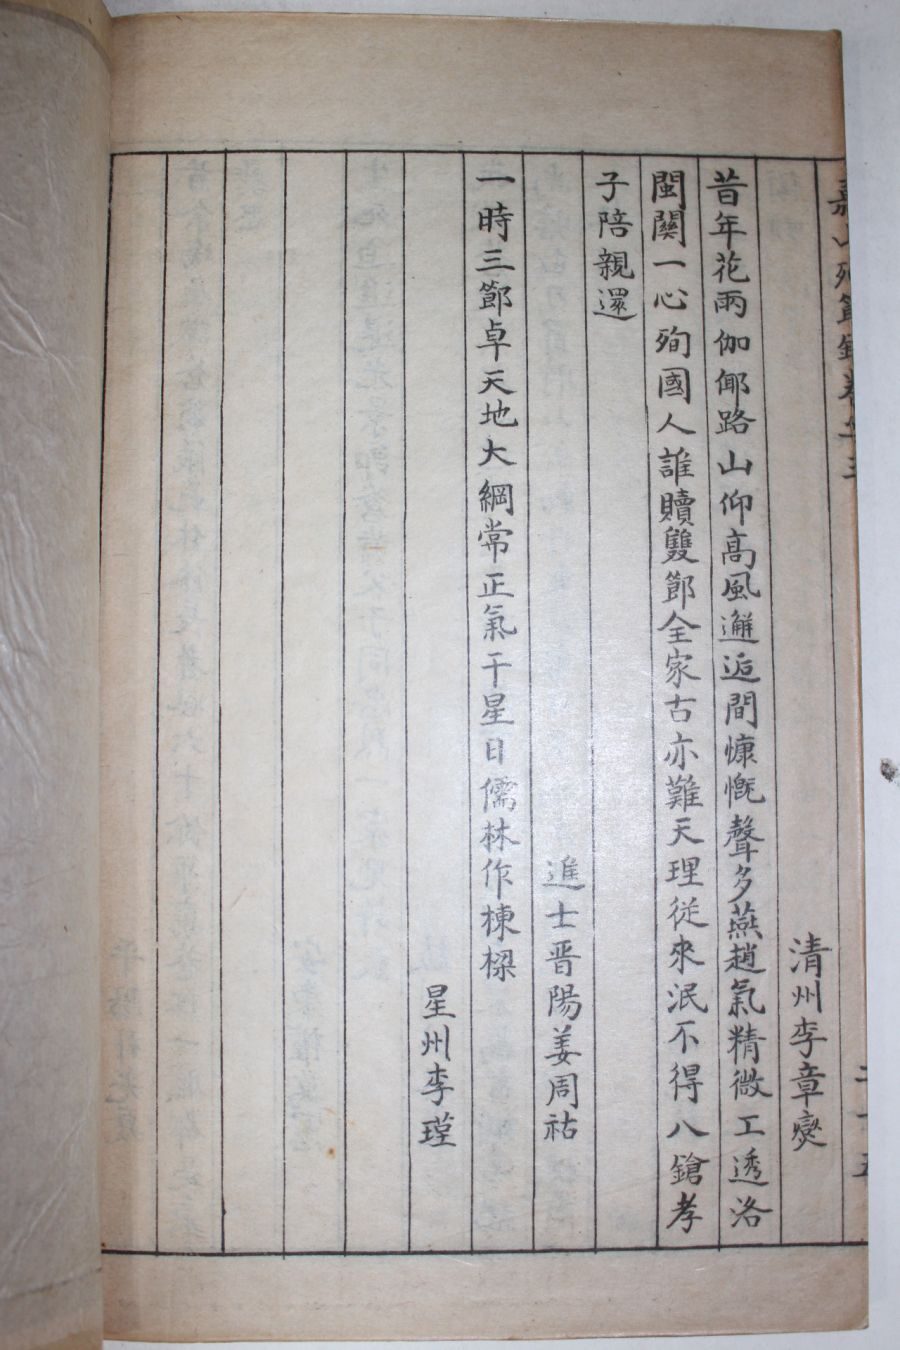 嘉山殉節錄卷之三
清州李章燮
昔年花雨伽倻路山仰高風邂逅間慷慨聲多燕趙氣精微工透洛
閩關一心殉國人誰贖雙節全家古亦難天理從來泯不得八鎗孝
子陪親還
進士晋陽姜周祜
一時三節卓天地大綱常正氣干星日儒林作棟樑
星州李瑾